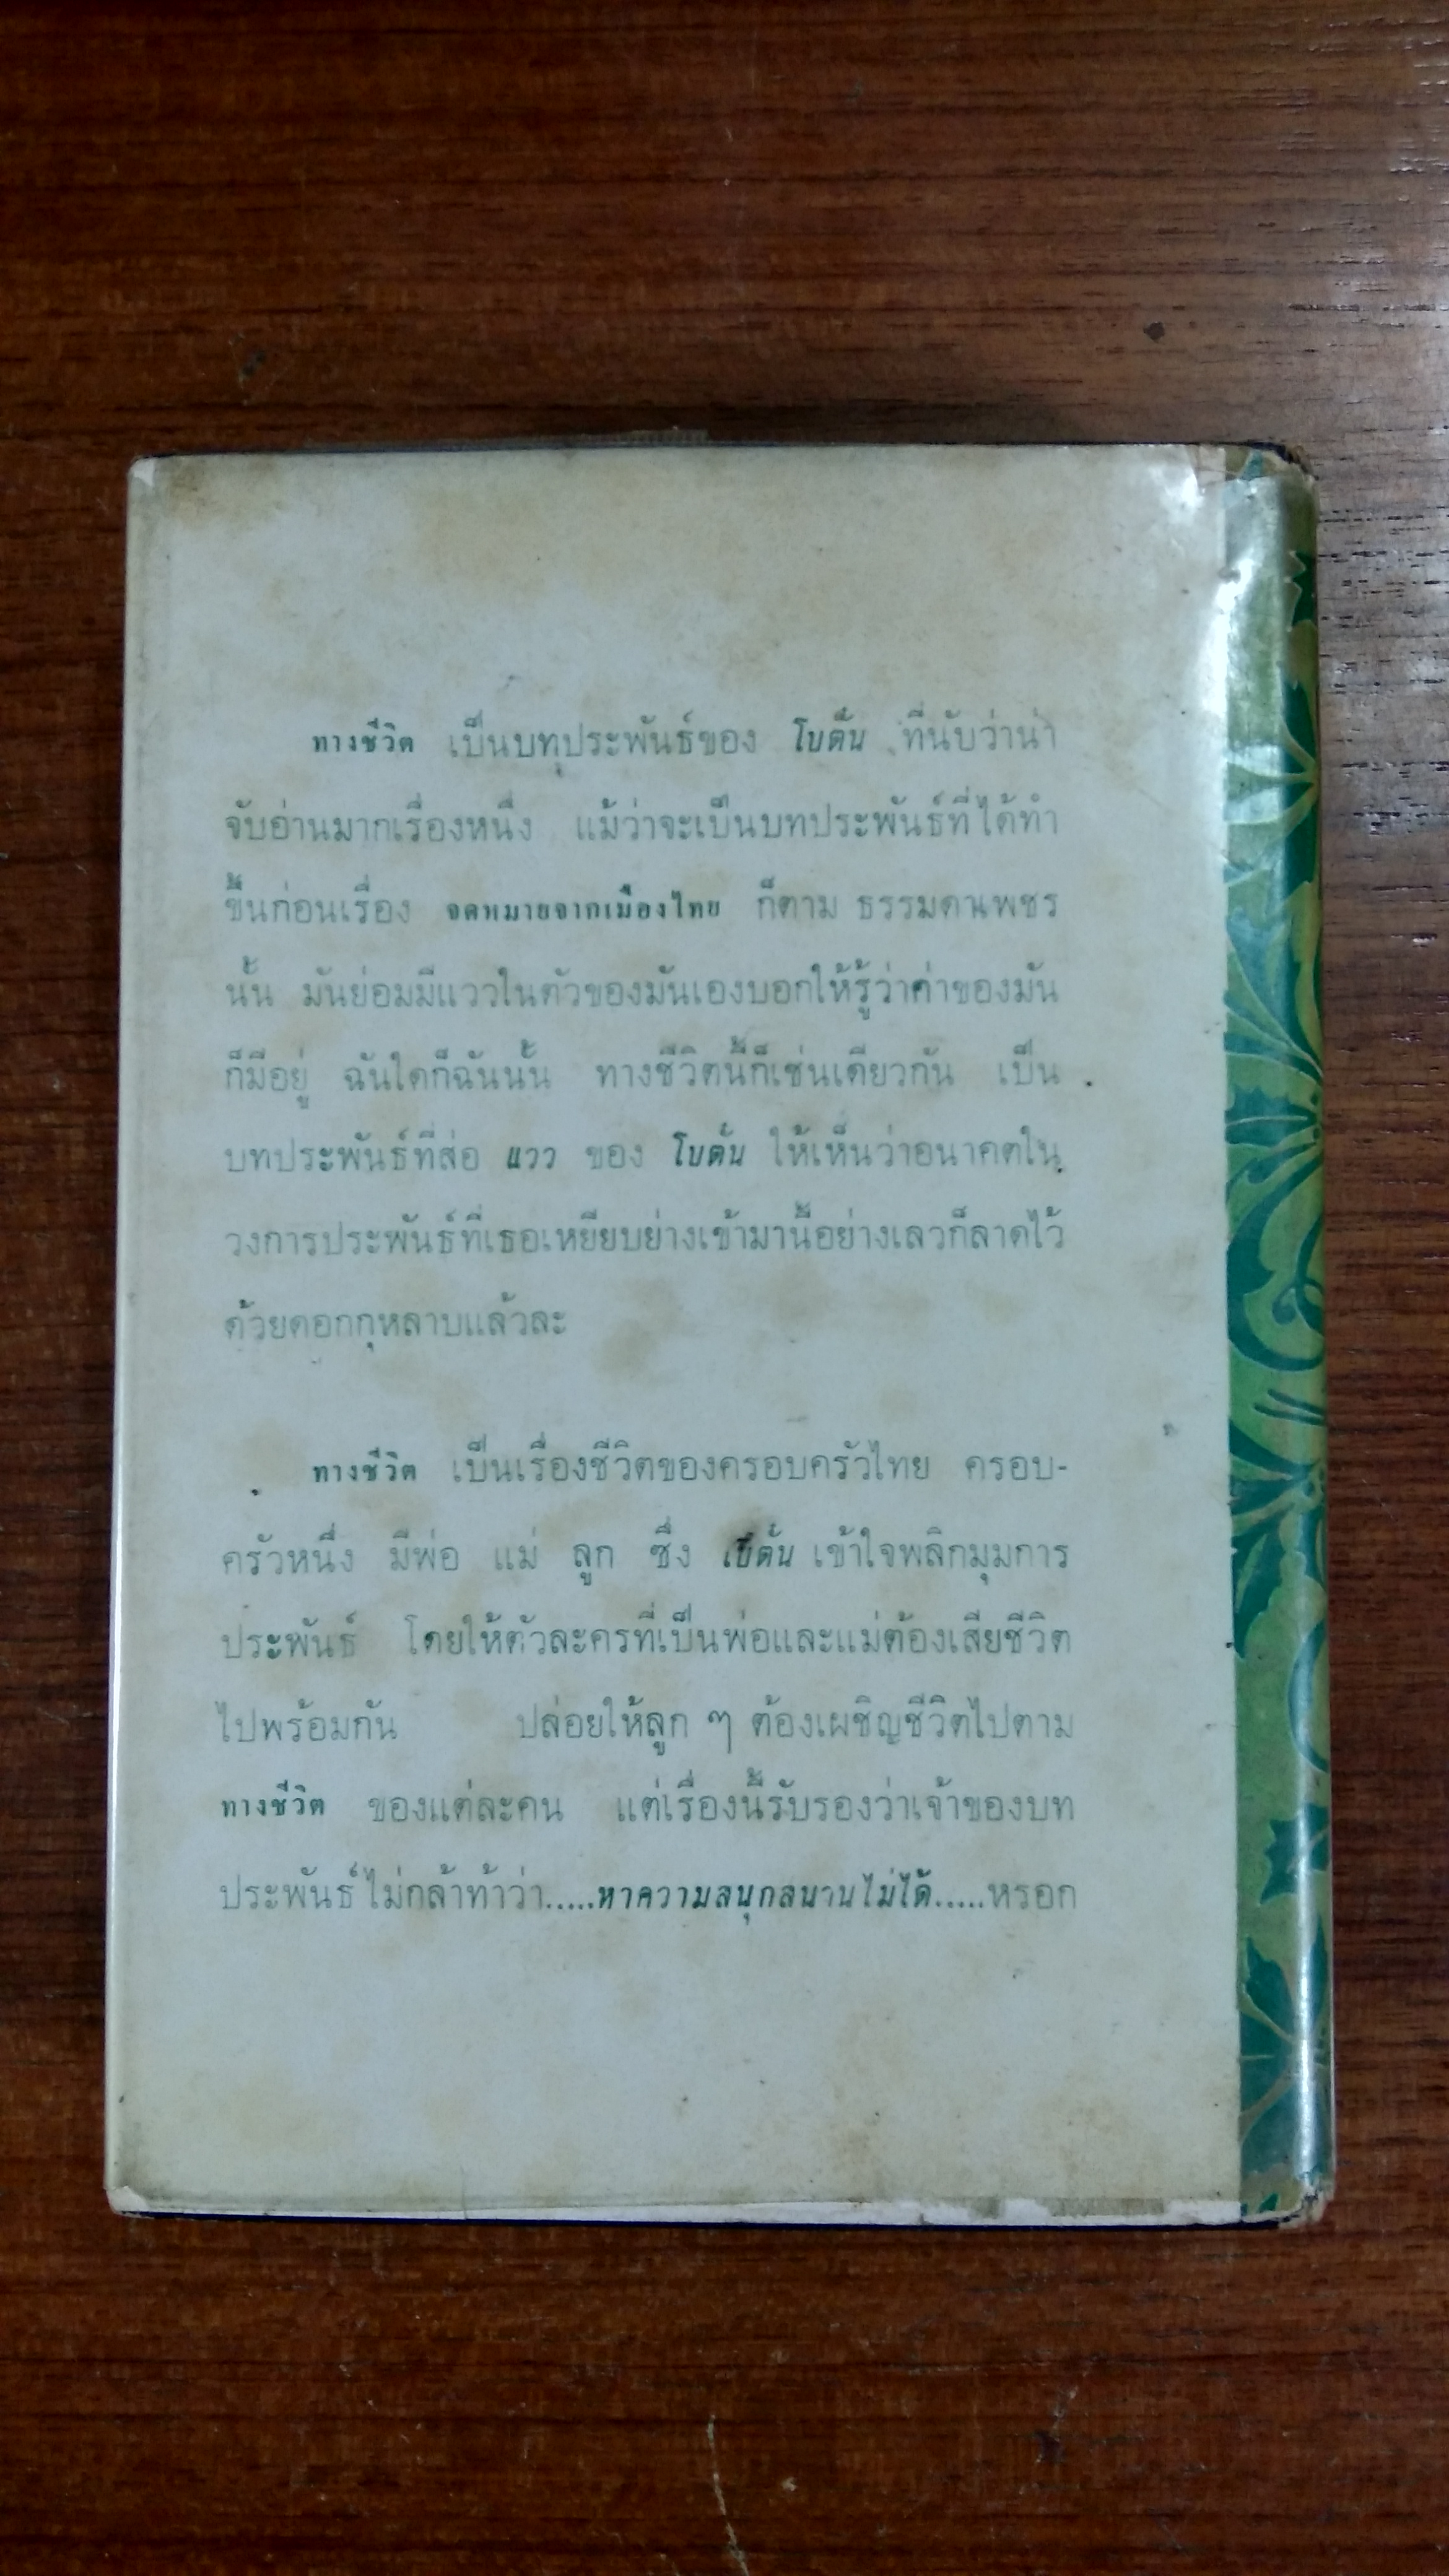 ทางชีวิต เป็นบทประพันธ์ของ โบตั๋น ที่นับว่าน่า
จับอ่านมากเรื่องหนึ่ง แม้ว่าจะเป็นบทประพันธ์ที่ได้ทำ
ขึ้นก่อนเรื่อง จดหมายจากเมืองไทย ก็ตาม ธรรมดาเพชร
นั้น มันย่อมมีแววในตัวของมันเองบอกให้รู้ว่าค่าของมัน
ก็มีอยู่ ฉันใดก็ฉันนั้น ทางชีวิตนี้ก็เช่นเดียวกัน เป็น
บทประพันธ์ที่ส่อ แวว ของ โบตั๋น ให้เห็นว่าอนาคตใน
วงการประพันธ์ที่เธอเหยียบย่างเข้ามานี้อย่างเลวก็ลาดไว้
ด้วยดอกกุหลาบแล้วละ
ทางชีวิต เป็นเรื่องชีวิตของครอบครัวไทย ครอบ-
ครัวหนึ่ง มีพ่อ แม่ ลูก ซึ่ง โบตั๋น เข้าใจพลิกมุมการ
ประพันธ์ โดยให้ตัวละครที่เป็นพ่อและแม่ต้องเสียชีวิต
ไปพร้อมกัน ปล่อยให้ลูก ๆ ต้องเผชิญชีวิตไปตาม
ทางชีวิต ของแต่ละคน แต่เรื่องนี้รับรองว่าเจ้าของบท
ประพันธ์ไม่กล้าท้าว่า.....หาความสนุกสนานไม่ได้.....หรอก